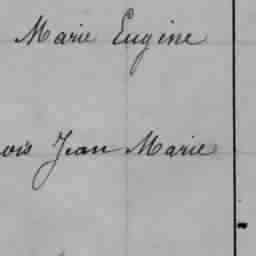 Marie Eugène
ois Jean Marie